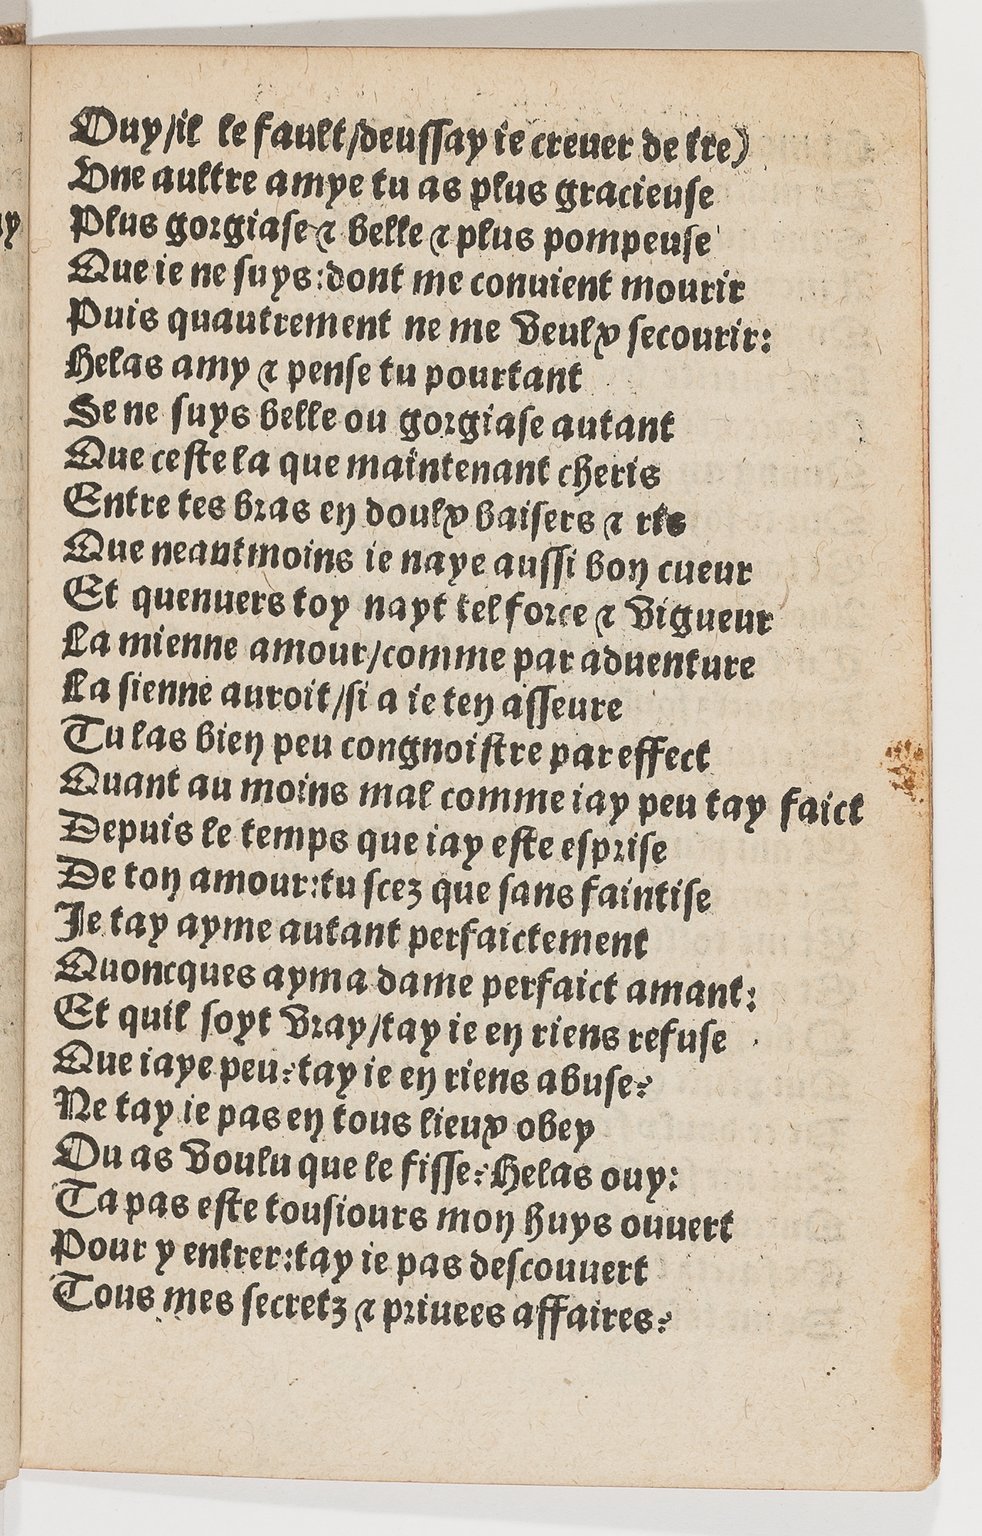 Ouy/il le fault/deussay ie creuer de ire)
Une aultre amye tu as plus gracieuse
Plus gorgiase ⁊ belle ⁊ plus pompeuse
Que ie ne suys:dont me conuient mourir
Puis quautrement ne me veulx secourir:
Helas amy ⁊ pense tu pourtant
Se ne suys belle ou gorgiase autant
Que ceste la que maintenant cheris
Entre tes bras en doulx baisers ⁊ ris
Que neantmoins ie naye aussi bon cueur
Et quenuers toy nayt tel force ⁊ vigueur
La mienne amour/comme par aduenture
La sienne auroit/si a ie ten asseure
Tu las bien peu congnoistre par effect
Quant au moins mal comme iay peu tay faict
Depuis le temps que iay este esprise
De ton amour:tu scez que sans faintise
Je tay ayme autant perfaictement
Quoncques ayma dame perfaict amant:
Et quil soyt vray/tay ie en riens refuse
Que iaye peu?tay ie en riens abuse?
Ne tay ie pas en tous lieux obey
Ou as voulu que le fisse?Helas ouy:
Ta pas este tousiours mon huys ouuert
Pour y entrer:tay ie pas descouuert
Tous mes secretz ⁊ priuees affaires?